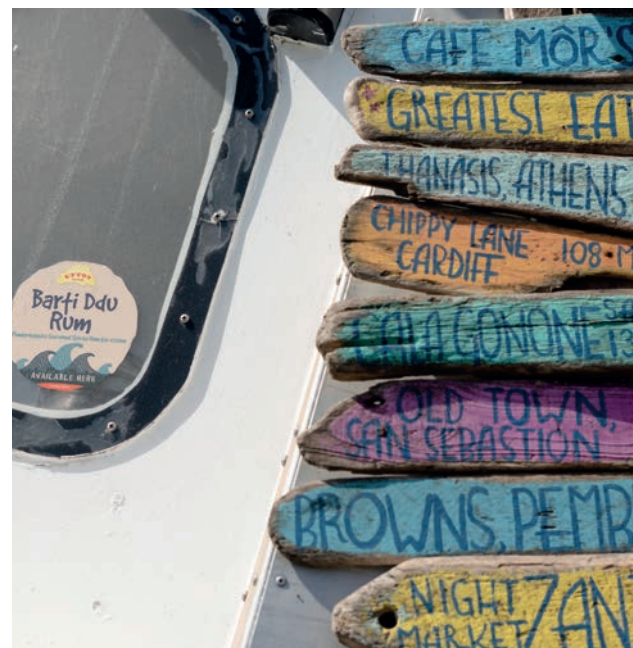 Barti Ddu
Rum
AVAILABLE HERE
CAFE MÔR'S
GREATEST EAT
THANASIS, ATHENS
CHIPPY LANE
CARDIFF 108 M
CALA GONONE
13
OLD TOWN,
SAN SEBASTION
BROWNS, PEMB
NIGHT
MARKET ZAN